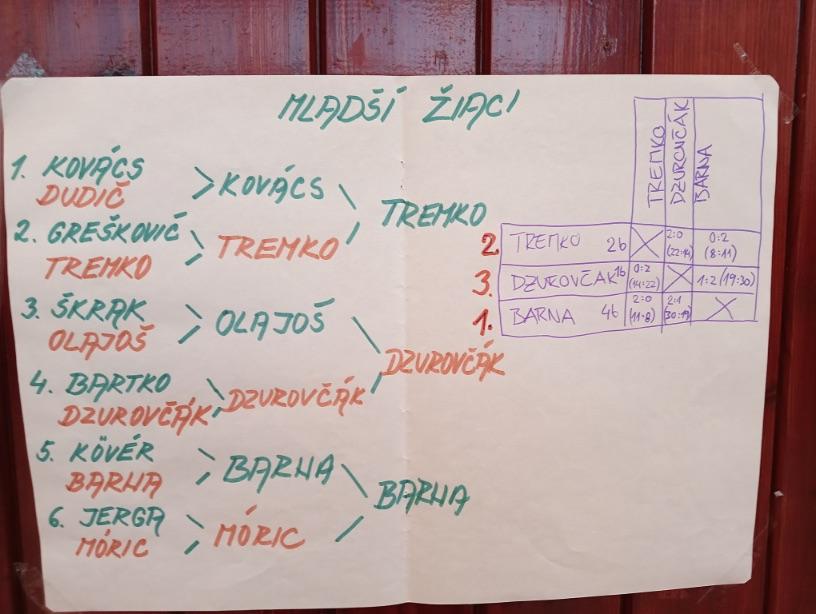 MLADŠÍ ŽIACI
1. KOVÁCS
DUDIČ
2. GREŠKOVIČ
TREMKO
3. ŠKRAK
OLAJOŠ
4. BARTKO
DZUROVČÁK
5. KÖVÉR
BARNA
6. JERGA
MÓRIC
KOVÁCS
TREMKO
OLAJOŠ
DZUROVČÁK
BARNA
MÓRIC
TREMKO
DZUROVČÁK
BARNA
TREMKO DZUROVČÁK BARNA
2. TREMKO 2b 2:0 (22:14) 0:2 (8:11)
3. DZUROVČÁK 1b 0:2 (14:22) 1:2 (19:30)
1. BARNA 4b 2:0 (11:8) 2:1 (30:19)